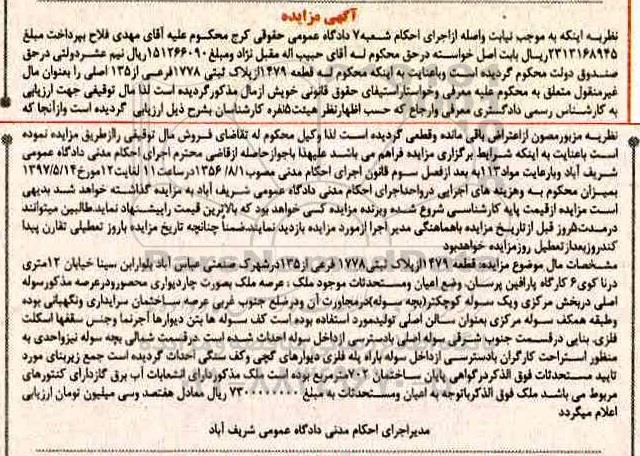 آگهی مزایده
نظریه اینکه به موجب نیابت واصله ازاجرای احکام شعبه۷ دادگاه عمومی حقوقی کرج محکوم علیه آقای مهدی فلاح بپرداخت مبلغ
۲۳۱۳۱۶۸۹۴۵ریال بابت اصل خواسته درحق محکوم له آقای حبیب اله مقبل نژاد ومبلغ۱۵۱۲۶۶۰۹۰ریال نیم عشردولتی درحق
صندوق دولت محکوم گردیده است وباعنایت به اینکه محکوم له قطعه ۱۴۷۹ازپلاک ثبتی ۱۷۷۸فرعی از۱۳۵ اصلی را بعنوان مال
غیرمنقول متعلق به محکوم علیه معرفی وخواستاراستیفای حقوق قانونی خویش ازمال مذکورگردیده است لذا مال توقیفی جهت ارزیابی
به کارشناس رسمی دادگستری معرفی وارجاع که حسب اظهارنظر هیئت۵نفره کارشناسان بشرح ذیل ارزیابی گردیده است وازآنجا که
نظریه مزبورمصون ازاعتراض باقی مانده وقطعی گردیده است لذا وکیل محکوم له تقاضای فروش مال توقیفی راازطریق مزایده نموده
است باعنایت به اینکه شرایط برگزاری مزایده فراهم می باشد علیهذا باجوازحاصله ازقاضی محترم اجرای احکام مدنی دادگاه عمومی
شریف آباد وبارعایت مواد۱۱۳به بعد ازفصل سوم قانون اجرای احکام مدنی مصوب۱۳۵۶/۸/۱ درساعت۱۱ لغایت۱۲مورخ۱۳۹۷/۵/۱۴
بمیزان محکوم به وهزینه های اجرایی درواحداجرای احکام مدنی دادگاه عمومی شریف آباد به مزایده گذاشته خواهد شد بدیهی
است مزایده ازقیمت پایه کارشناسی شروع شده وبرنده مزایده کسی خواهد بود که بالاترین قیمت راپیشنهاد نماید.طالبین میتوانند
درمدت۵روز قبل ازتاریخ مزایده باهماهنگی مدیر اجرا ازمورد مزایده بازدید نمایند.ضمنا چنانچه تاریخ مزایده باروز تعطیلی تقارن پیدا
کندروزبعدازتعطیل روزمزایده خواهدبود
مشخصات مال موضوع مزایده: قطعه ۱۴۷۹ازپلاک ثبتی۱۷۷۸ فرعی از۱۳۵درشهرک صنعتی عباس آباد بلوارابن سینا خیابان ۱۲متری
درنا کوی۶ کارگاه پارافین پرسان. وضع اعیان ومستحدثات موجود ملک : عرصه ملک بصورت چاردیواری محصورودرعرصه مذکورسوله
اصلی دربخش مرکزی ویک سوله کوچکتر(بچه سوله)درمجاورت آن ودرضلع جنوب غربی عرصه ساختمان سرایداری ونگهبانی بوده
وطبقه همکف سوله مرکزی بعنوان سالن اصلی تولیدمورد استفاده بوده است کف سوله ها بتن دیوارها آجرنما وجنس سقفها اسکلت
فلزی. بنایی درقسمت جنوب شرقی سوله اصلی بادسترسی ازداخل سوله احداث شده است درقسمت شمالی بچه سوله نیزواحدی به
منظور استراحت کارگران بادسترسی ازداخل سوله باراه پله فلزی دیوارهای گچی وکف سنگی احداث گردیده است جمع زیربنای مورد
تایید مستحدثات فوق الذکردرگواهی پایان ساختمان ۷۰۲مترمربع بوده است ملک مذکوردارای انشعابات آب برق گازدارای کنتورهای
مربوط می باشد ملک فوق الذکرباتوجه به اعیان ومستحدثات به مبلغ ۷۳۰۰۰۰۰۰۰۰ ریال معادل هفتصد وسی میلیون تومان ارزیابی
اعلام میگردد
مدیراجرای احکام مدنی دادگاه عمومی شریف آباد